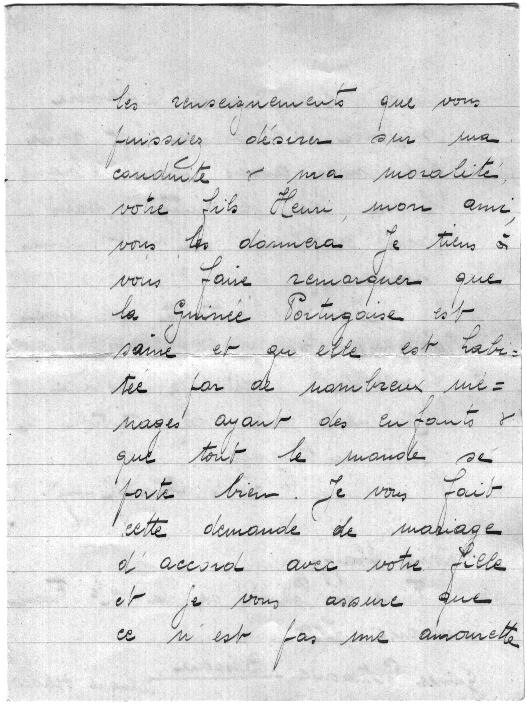 les renseignements que vous
puissiez désirer sur ma
conduite & ma moralité,
votre fils Henri, mon ami,
vous les donnera Je tiens à
vous faire remarquer que
la Guinée Portugaise est
saine et qu'elle est habi=
tée par de nombreux mé=
nages ayant des enfants &
que tout le monde se
porte bien. Je vous fait
cette demande de mariage
d'accord avec votre fille
et je vous assure que
ce n'est pas une amourette